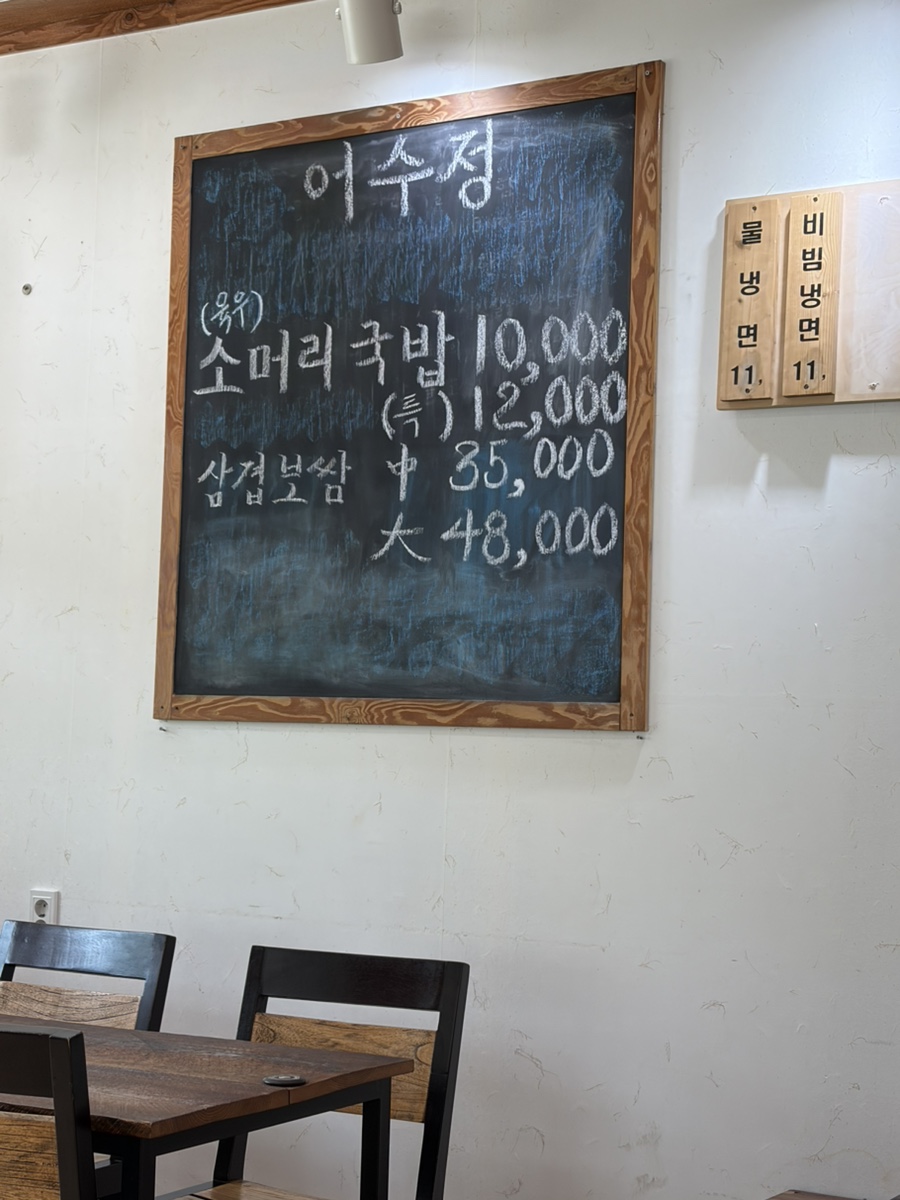 어수정
(육우)
소머리국밥 10,000
(특) 12,000
삼겹보쌈 中 35,000
大 48,000
물냉면 11,
비빔냉면 11,